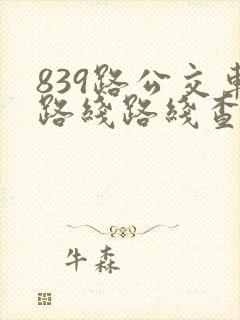 839路公交車
路綫路綫查
牛森